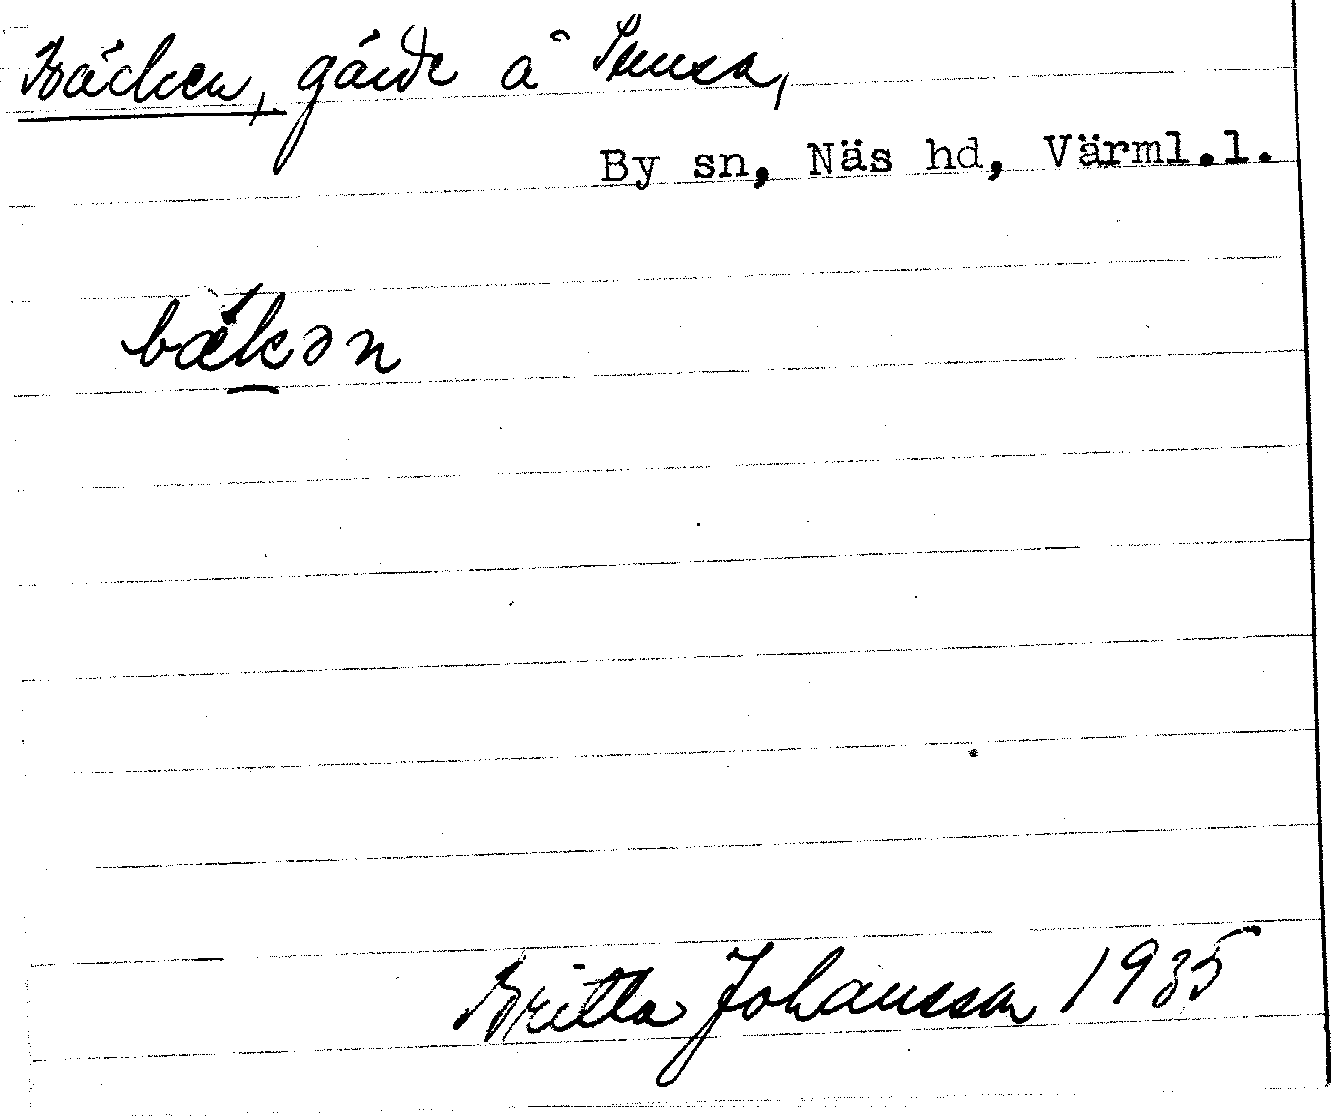 Bäcken, gärde å
By sn, Näs hd, Värml.l.
bäkən
Britta Johansson 1935